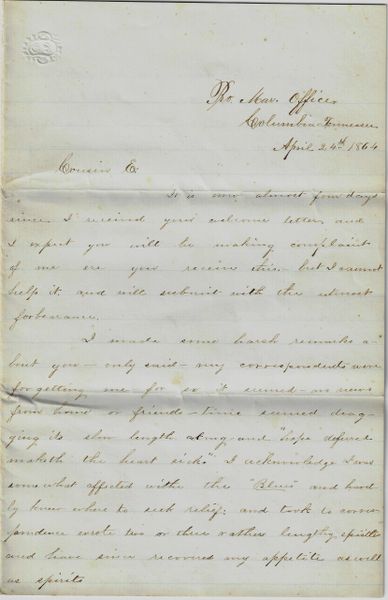 Pro. Mar. Office,
Columbia Tennessee
April 24th 1864
Cousin E.
It is now almost four days
since I received your welcome letter and
I expect you will be making complaint
of me ere you receive this - but I cannot
help it. and will submit with the utmost
forbearance.
I made some harsh remarks a-
bout you - only said - my correspondents were
forgetting me for so it seemed - no news
from home or friends - time seemed drag-
ging its slow length along - and "hope defered
maketh the heart sick". I acknowledge I was
somewhat affected withe the "Blues" and hard
ly knew where to seek relief; and took to corres-
pondence wrote two or three rather lengthy epistles
and have since recovered my appetite as well
as spirits